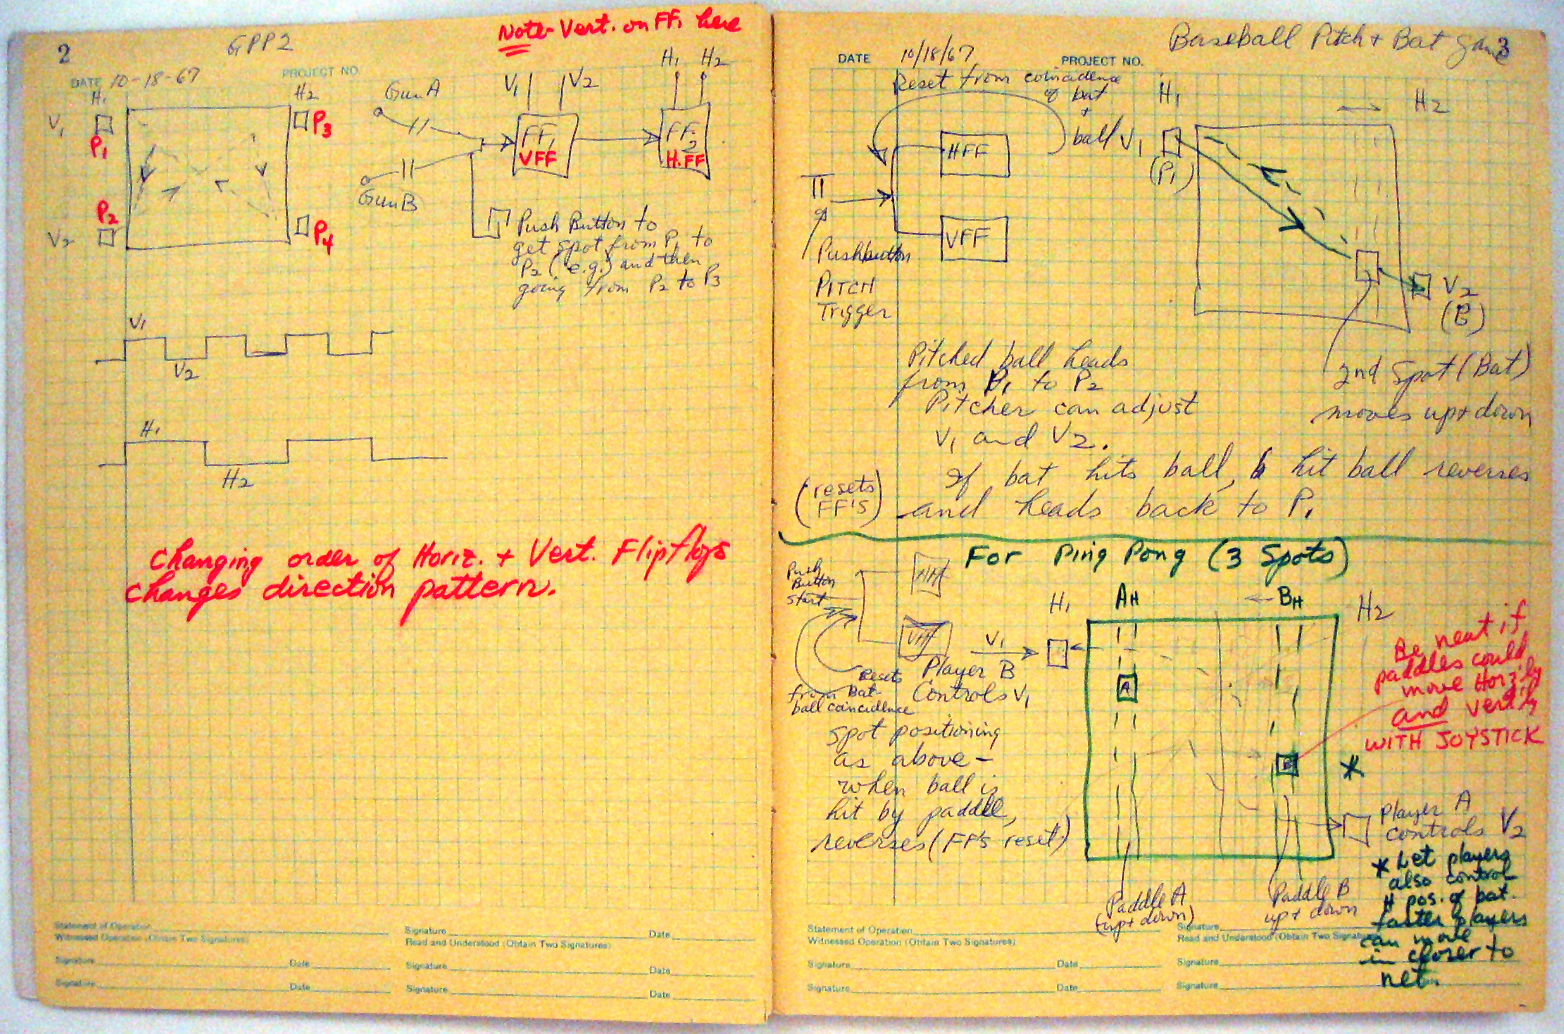 2
GPP2
Note- Vert. on FF1 here
DATE 10-18-67
PROJECT NO.
H1
H2
V1
P1
P3
P2
V2
P4
Gun A
Gun B
V1
V2
H1 H2
FF1
VFF
FF2
H.FF
Push Button to
get spot from P1 to
P2 (e.g.) and then
going from P2 to P3
V1
V2
H1
H2
Changing order of Horiz. + Vert. Flipflops
changes direction pattern.
Statement of Operation
Witnessed Operation (Obtain Two Signatures)
Signature
Date
Read and Understood (Obtain Two Signatures)
Signature
Date
Signature
Date
Signature
Date
Signature
Date
Baseball Pitch + Bat game
3
DATE 10/18/67
PROJECT NO.
Reset from coincidence
of bat
+
ball
HFF
VFF
Pushbutton
PITCH
Trigger
H1
H2
V1
(P1)
V2
(P2)
2nd Spot (Bat)
moves up + down
Pitched ball heads
from P1 to P2
Pitcher can adjust
V1 and V2.
If bat hits ball, hit ball reverses
(resets
FF'S)
and heads back to P1
For Ping Pong (3 Spots)
Push
Button
Start
HFF
VFF
Resets
from Bat-
ball coincidence
V1
Player B
Controls V1
H1
AH
BH
H2
A
B
spot positioning
as above -
when ball is
hit by paddle,
reverses (FF's reset)
Be neat if
paddles could
move Horz'ly
and vert'ly
WITH JOYSTICK
*
Player A
controls V2
* Let players
also control
H pos. of bat.
faster players
can move
in closer to
net.
Paddle A
(up + down)
Paddle B
up + down
Statement of Operation
Witnessed Operation (Obtain Two Signatures)
Signature
Date
Signature
Read and Understood (Obtain Two Signatures)
Signature
Date
Signature
Date
Signature